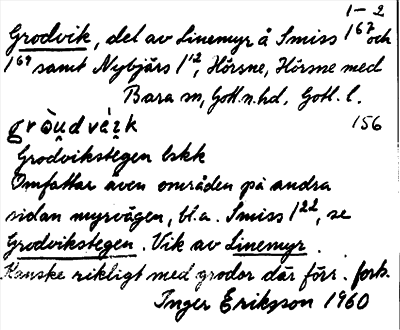 1-2
Grodvik, del av Linemyr å Smiss 1⁶⁷ och
1⁶⁹ samt Nybjärs 1¹², Hörsne, Hörsne med
Bara sn, Gotl. n. hd, Gotl. l.
156
Grodvikstegen bskk
Omfattar även områden på andra
sidan myrvägen, bl.a. Smiss 1²², se
Grodvikstegen. Vik av Linemyr.
Kanske rikligt med grodor där förr. forts.
Inger Eriksson 1960